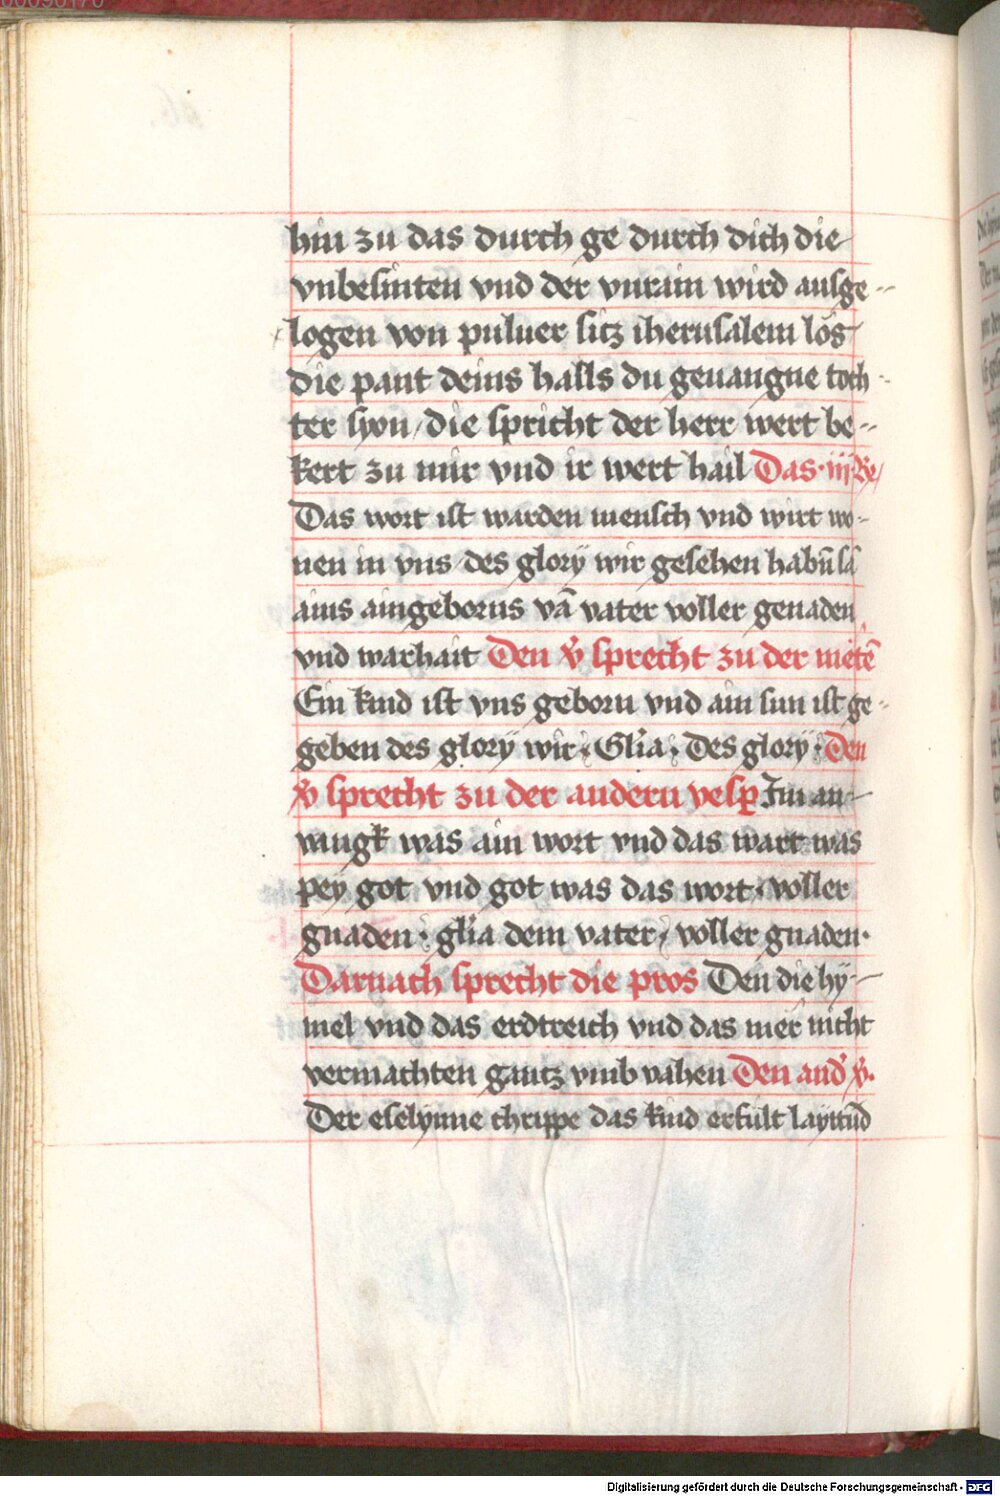 hin zu das durch ge durch dich die
vnbesniten vnd der vnrain wird ausge-
logen von puluer sitz iherusalem lös
die pant deins halls du geuangne toch-
ter syon / die spricht der herr wert be-
kert zu mir vnd ir wert hail Das · iij · Re
Das wort ist warden mensch vnd wirt wo-
nen in vns des glory wir gesehen habn̄ sā
ains aingeborns vā vater voller genaden
vnd warhait Den v̉ sprecht zu der mëtē
Ein kind ist vns geborn vnd ain sun ist ge-
geben des glory wir · Gl'ia · Des glory · Den
v̉ sprecht zu der andern vesp̄ Im an-
uangk was ain wort vnd das wart was
pey got vnd got was das wort · voller
gnaden · gl'ia dem vater · voller gnaden ·
Darnach sprecht die pros Den die hy-
mel vnd das erdtreich vnd das mer nicht
vermachten gantz vmb vahen Den and' v̉ ·
Der eselynne chrippe das kind erfült layttūd
Digitalisierung gefördert durch die Deutsche Forschungsgemeinschaft - DFG